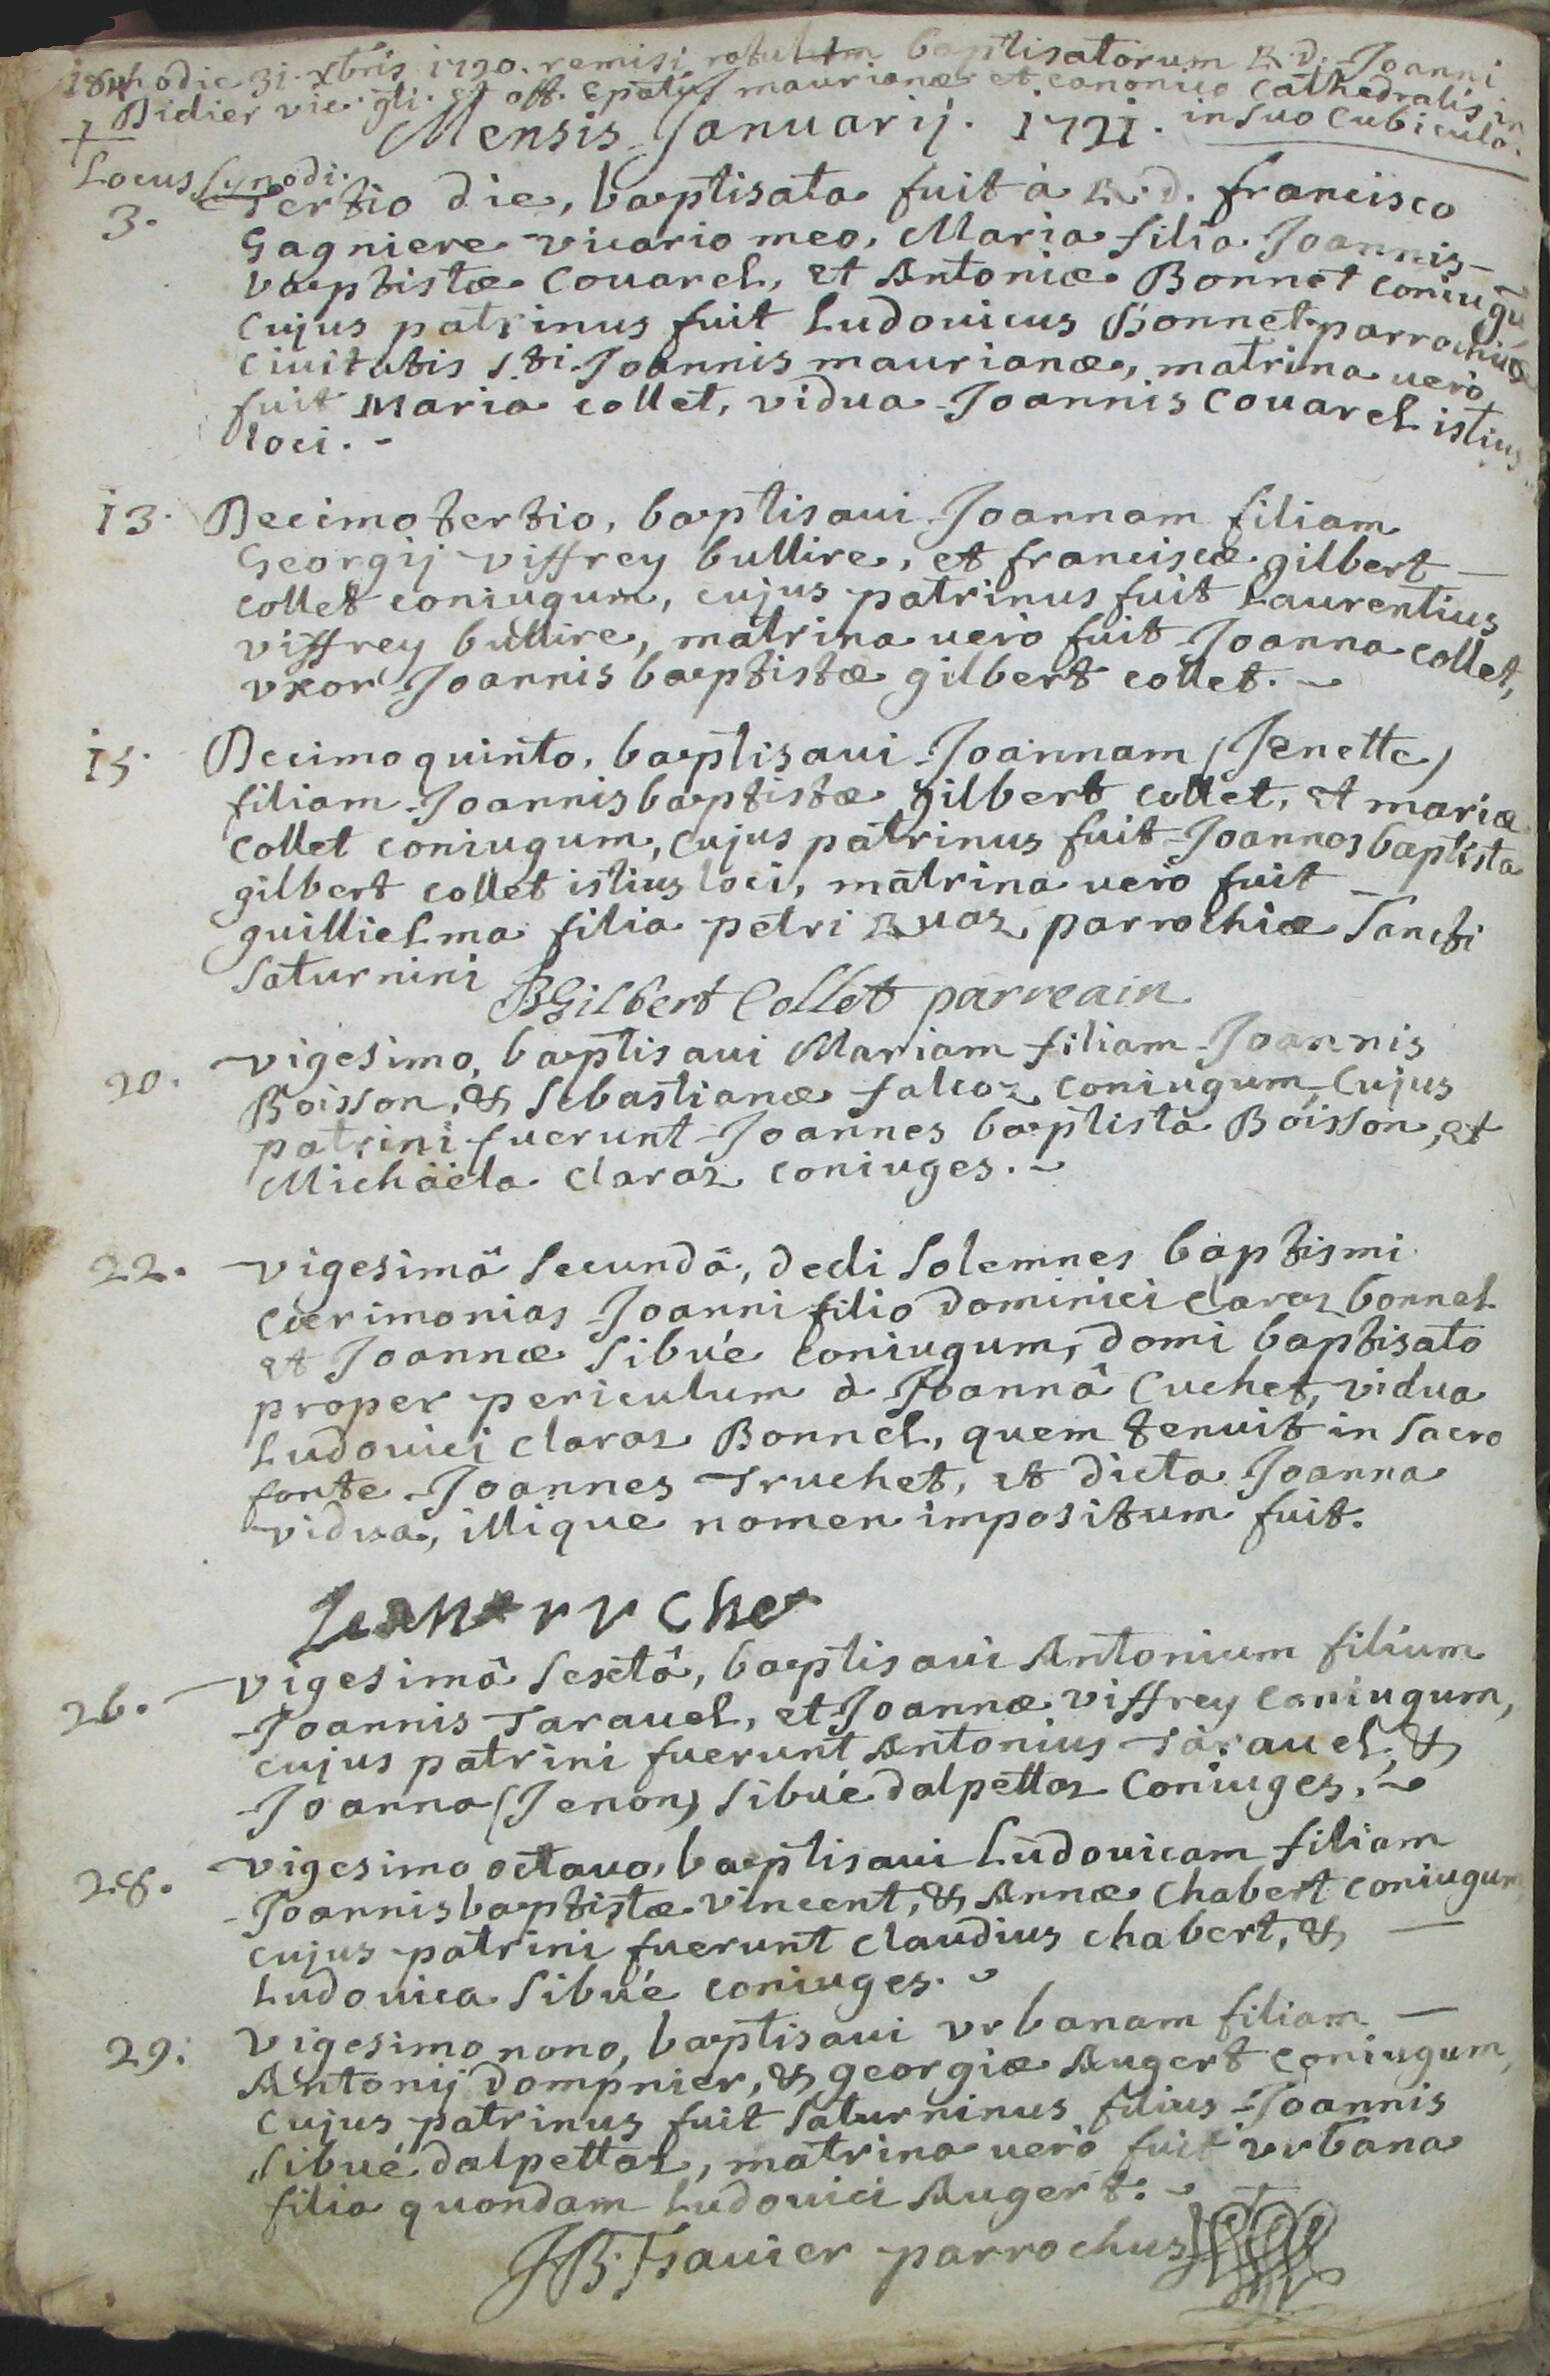 hodie 31. xbris 1720. remisi rotulum baptisatorum R.d. Joanni
Didier vic. gli. et off. Epatûs maurianæ et canonico Cathedralis in
in suo Cubiculo.
Mensis Januarij. 1721.
Locus synodi.
3. Tertio die, baptisata fuit à R.d. francisco
Gagniere vicario meo, Maria filia Joannis
baptistæ Couarel, et Antoniæ Bonnet coniugû
cujus patrinus fuit Ludouicus Bonnet parrochiæ
ciuitatis Sti. Joannis maurianæ, matrina uerò
fuit Maria collet, vidua Joannis Couarel istius
loci. -
13. Decimotertio, baptisaui Joannam filiam
Georgij viffrey bullire, et franciscæ gilbert —
collet coniugum, cujus patrinus fuit Laurentius
viffrey bullire, matrina uerò fuit Joanna collet,
vxor Joannis baptistæ gilbert collet.
15. Decimoquinto, baptisaui Joannam (Jenette)
filiam Joannisbaptistæ gilbert collet, et mariæ
collet coniugum, cujus patrinus fuit Joannesbaptista
gilbert collet istius loci, matrina uerò fuit —
guillielma filia petri Ruaz parrochiæ Sancti
Saturnini
BGilbert Collet parreain
20. vigesimo, baptisaui Mariam filiam Joannis
Boisson, & Sebastianæ falcoz coniugum, Cujus
patrini fuerunt Joannes baptista Boisson, et
Michäela Claraz coniuges.
22. vigesimâ Secundâ, dedi Solemnes baptismi
cærimonias Joanni filio dominici claraz bonnel
et Joannæ Sibué coniugum, domi baptisato
proper periculum à Joannâ Cuchet, vidua
Ludouici claraz Bonnel, quem tenuit in Sacro
fonte Joannes Truchet, et dicta Joanna
vidua, illique nomen impositum fuit.
26. vigesimâ Sextâ, baptisaui Antonium filium
Joannis Tarauel, et Joannæ viffrey coniugum,
cujus patrini fuerunt Antonius Tarauel, &
Joanna (Jenon) Sibué dalpettaz Coniuges.
28. vigesimo octauo, baptisaui Ludouicam filiam
Joannisbaptistæ vincent, & Annæ Chabert coniugum
cujus patrini fuerunt claudius chabert, & —
Ludouica Sibué coniuges.
29. Vigesimo nono, baptisaui vrbanam filiam —
Antonij dompnier, & georgiæ Augert coniugum,
cujus patrinus fuit Saturninus filius Joannis
Sibué dalpettaz, matrina uerò fuit vrbana
filia quondam Ludouici Augert.
parrochus